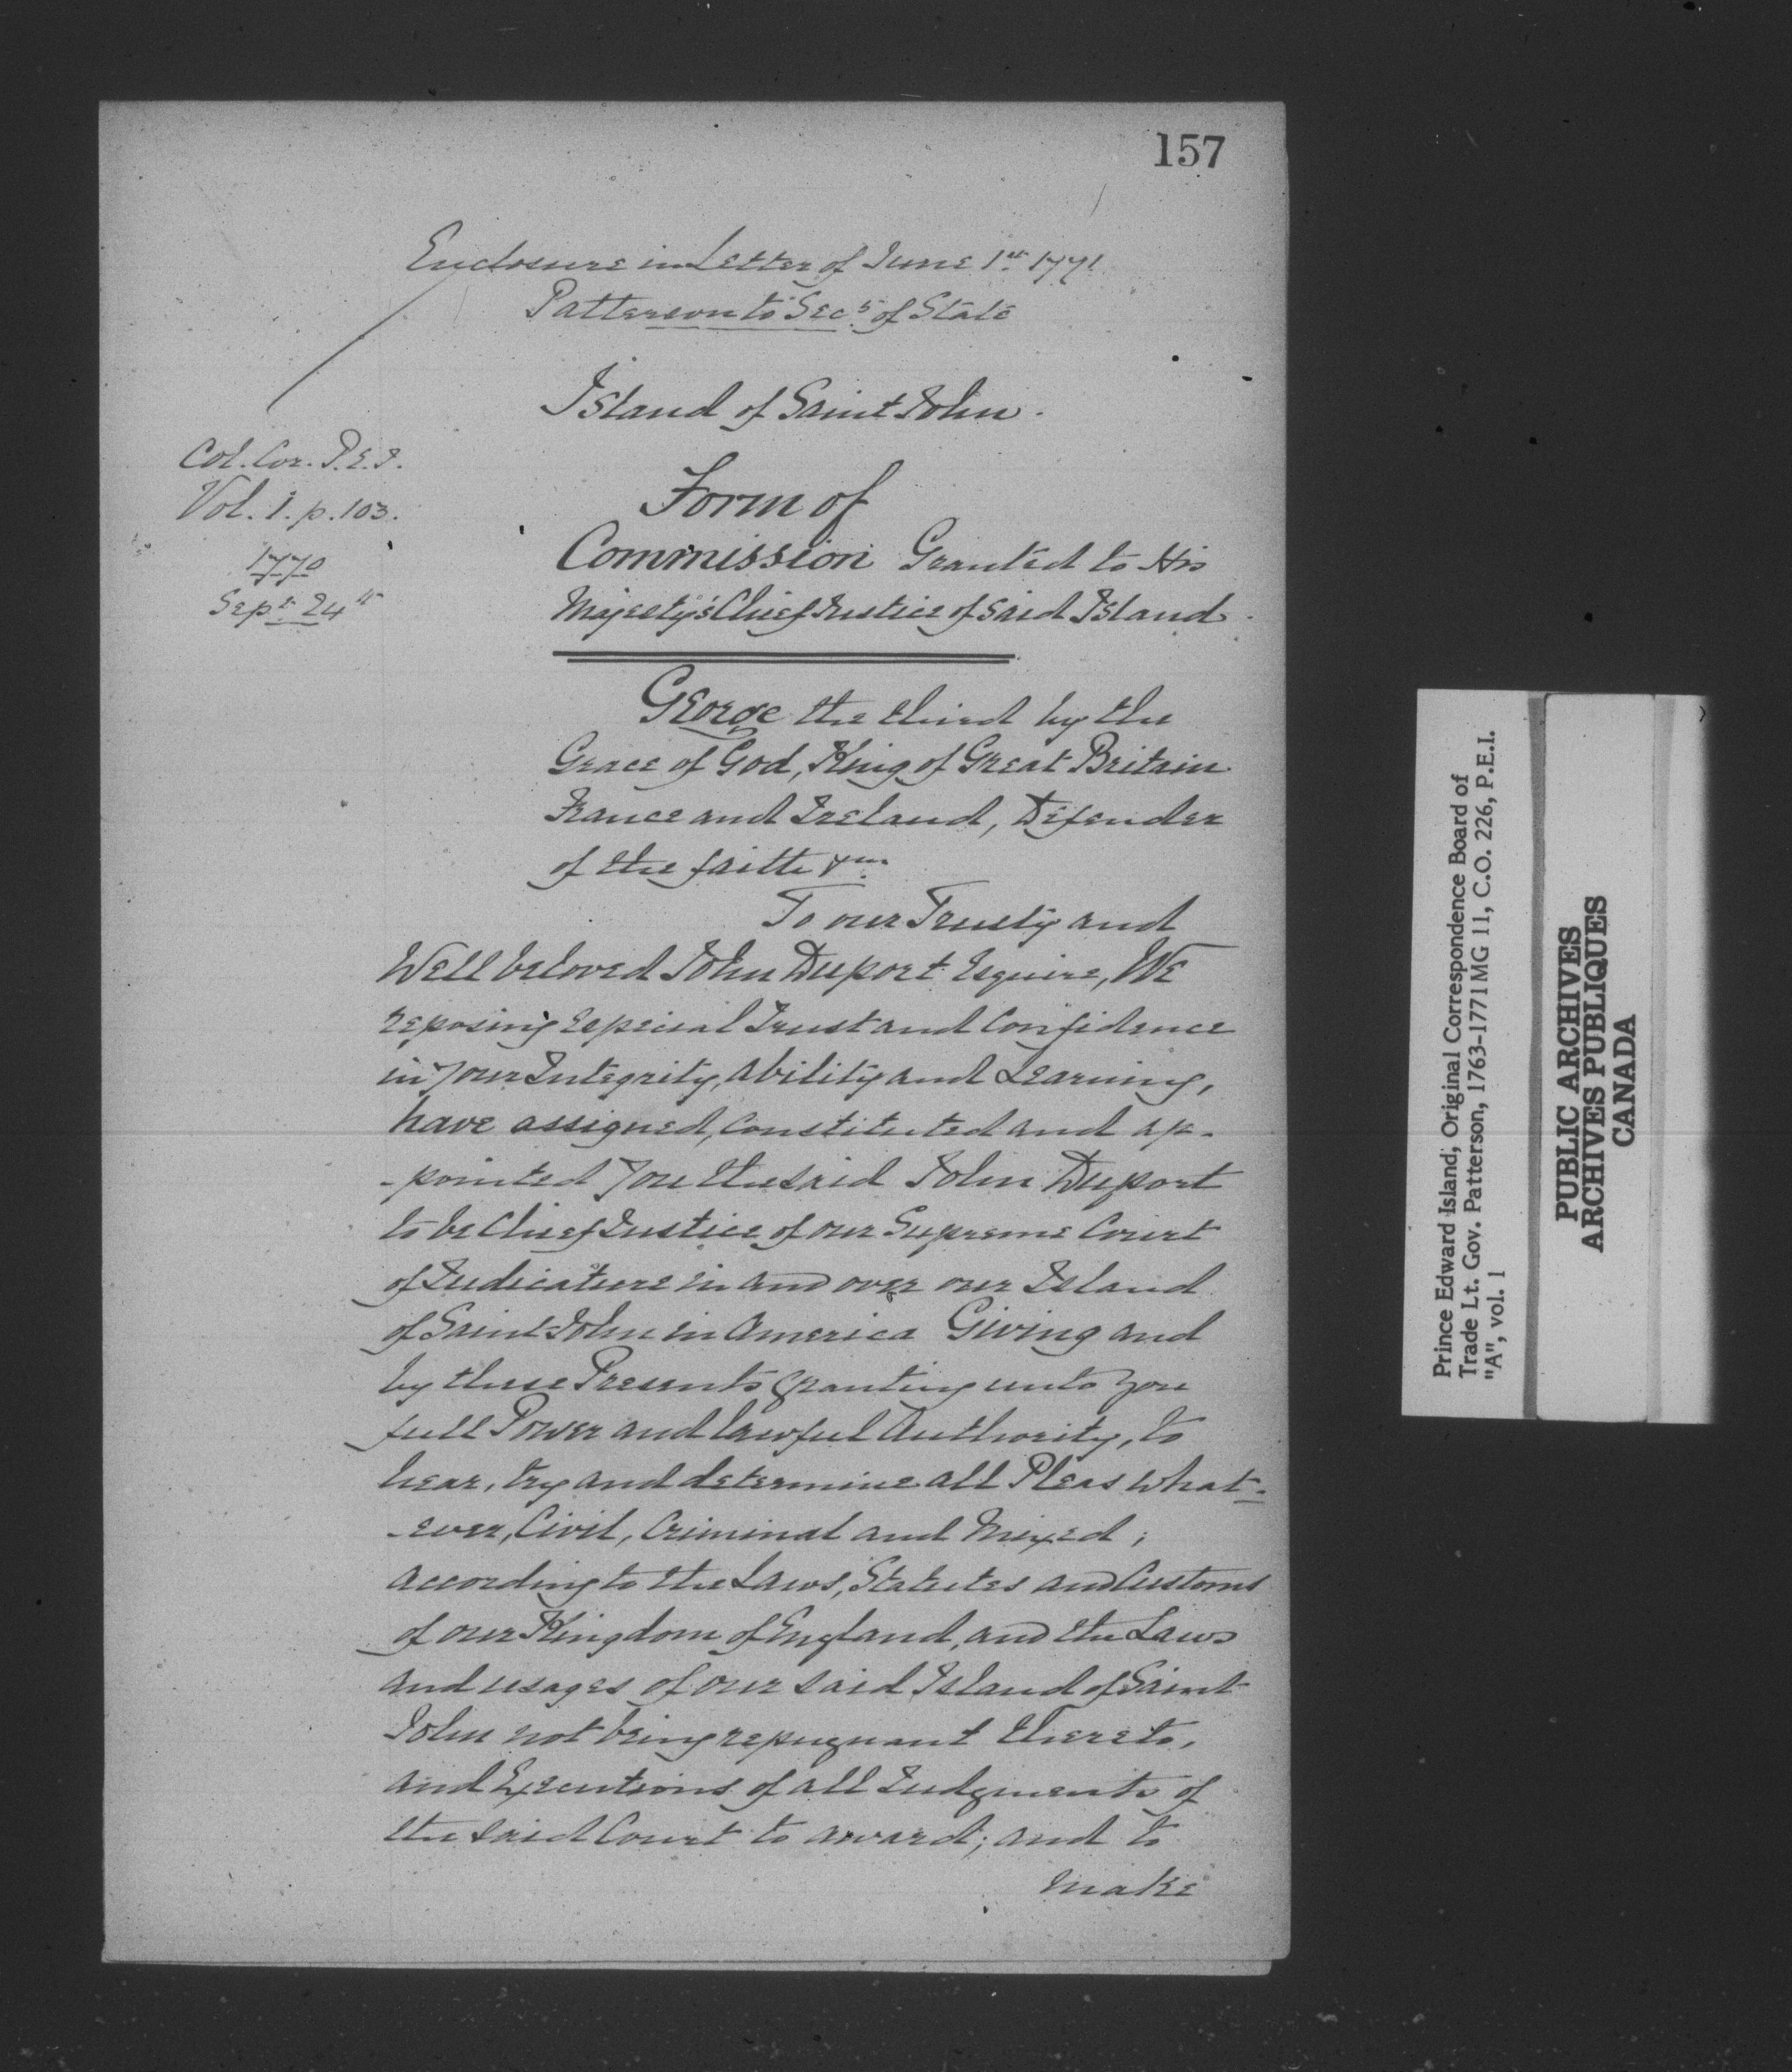 157
Enclosure in Letter of June 1st 1771
Patterson to Secy of State
Island of Saint John.
Col. Cor. P.E.I.
Vol. 1. p. 103.
1770
Sepr 24th
Form of
Commission Granted to His
Majesty's Chief Justice of said Island.
George the third by the
Grace of God, King of Great Britain
France and Ireland, Defender
of the faith &ca.
To our Trusty and
Well beloved John Duport Esquire, We
reposing especial Trust and Confidence
in your Integrity, ability and Learning,
have assigned, Constituted and ap-
-pointed you the said John Duport
to be Chief Justice of our Supreme Court
of Judicature in and over our Island
of Saint John in America Giving and
by these Presents Granting unto you
full Power and lawful Authority, to
hear, try and determine all Pleas what-
-ever, Civil, Criminal and Mixed;
according to the Laws, Statutes and Customs
of our Kingdom of England, and the Laws
and usages of our said Island of Saint
John not being repugnant thereto,
and Executions of all Judgments of
the said Court to award; and to
make
Prince Edward Island, Original Correspondence Board of
Trade Lt. Gov. Patterson, 1763-1771 MG 11, C.O. 226, P.E.I.
"A", vol. 1
PUBLIC ARCHIVES
ARCHIVES PUBLIQUES
CANADA